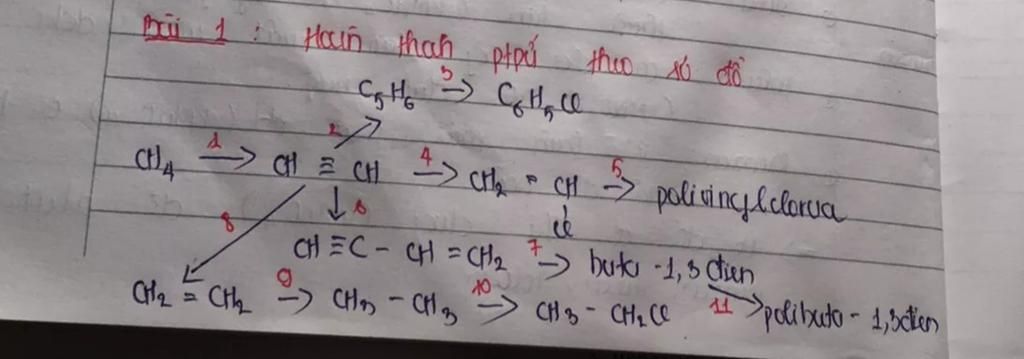 Bài 1 : Hoàn thành ptpứ theo sơ đồ
C₅H₆ →³ C₆H₅Cl
CH₄ →¹ CH ≡ CH →⁴ CH₂ = CH →⁵ polivinylclorua
2
Cl
8 ↓ 6
CH ≡ C - CH = CH₂ →⁷ buta -1,3 đien
CH₂ = CH₂ →⁹ CH₃ - CH₃ →¹⁰ CH₃ - CH₂Cl 11 → polibuta - 1,3đien